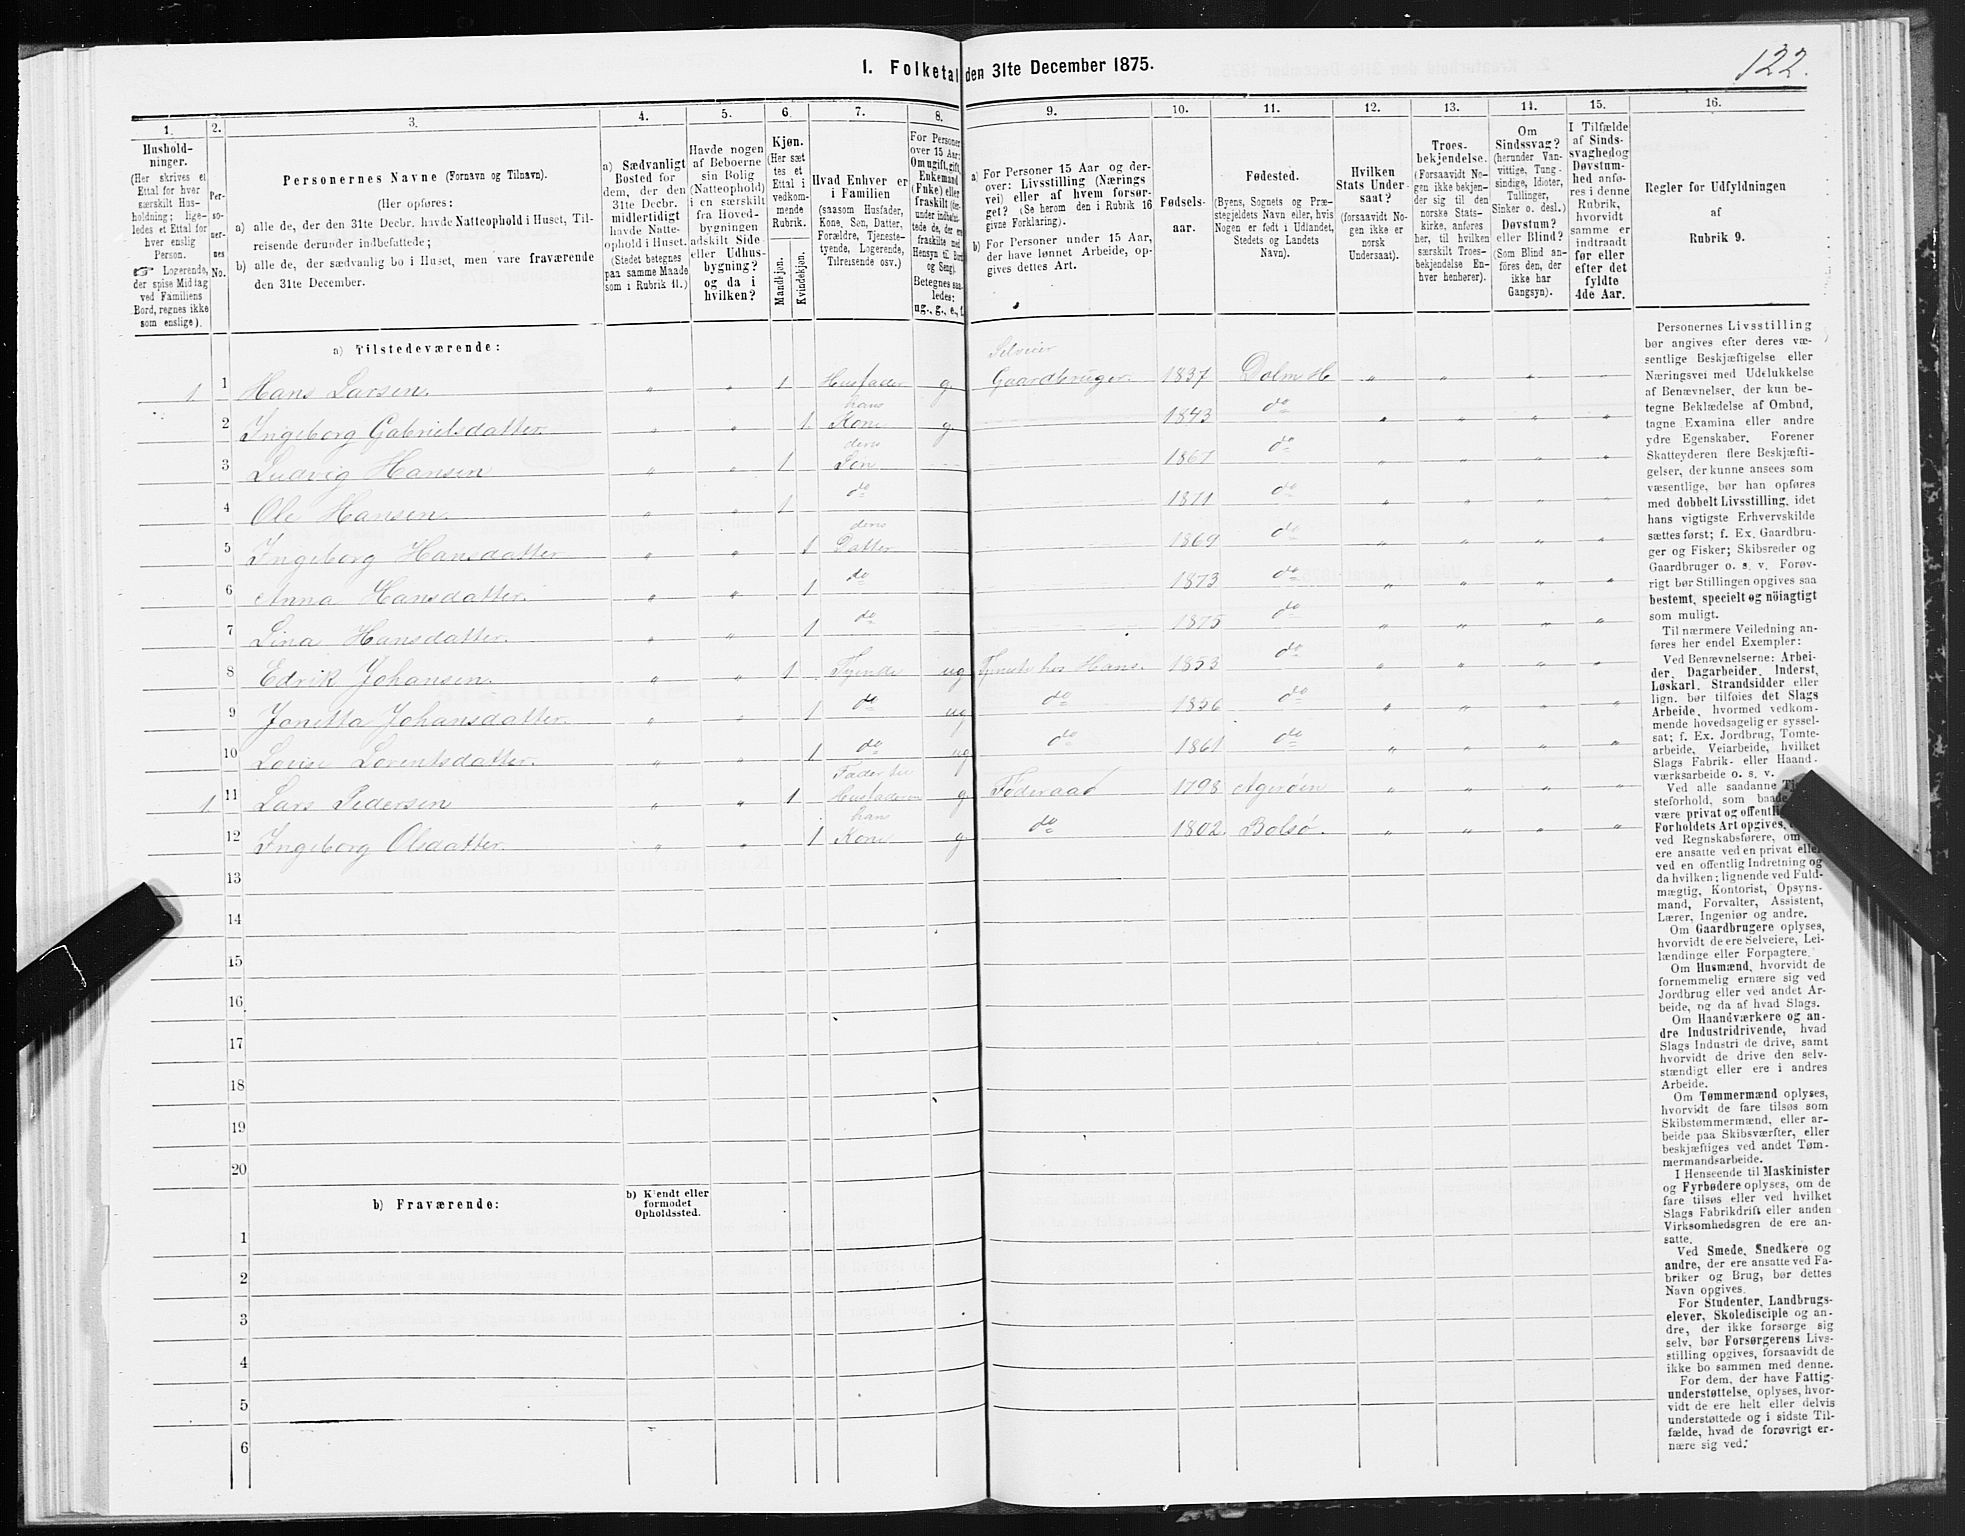 122.
1. Folketal den 31te December 1875.
1. 2. 3. 4. 5. 6. 7. 8. 9. 10. 11. 12. 13. 14. 15. 16.
Hushold-
ninger.
(Her skrives et
Ettal for hver
særskilt Hus-
holdning; lige-
ledes et Ettal for
hver enslig
Person.
☞ Logerende,
der spise Middag
ved Familiens
Bord, regnes ikke
som enslige).
Per-
so-
ner-
nes
No.
Personernes Navne (Fornavn og Tilnavn).
(Her opføres:
a) alle de, der den 31te Decbr. havde Natteophold i Huset, Til-
reisende derunder indbefattede;
b) alle de, der sædvanlig bo i Huset, men vare fraværende
den 31te December.
a) Sædvanligt
Bosted for
dem, der den
31te Decbr.
midlertidigt
havde Natte-
ophold i Huset.
(Stedet betegnes
paa samme Maade
som i Rubrik 11.)
Havde nogen
af Beboerne
sin Bolig
(Natteophold)
i en særskilt
fra Hoved-
bygningen
adskilt Side-
eller Udhus-
bygning?
og da i
hvilken?
Kjøn.
(Her sæt-
tes et
Ettal i
vedkom-
mende
Rubrik.
Mandkjøn.
Kvindekjøn.
Hvad Enhver er
i Familien
(saasom Husfader,
Kone, Søn, Datter,
Forældre, Tjeneste-
tyende, Logerende,
Tilreisende osv.)
For Personer
over 15 Aar:
Om ugift, gift,
Enkemand
(Enke) eller
fraskilt (der-
under indbefat-
tede de, der ere
fraskilte med
Hensyn til Bord
og Seng).
Betegnes saa-
ledes:
ug., g., e., f.
a) For Personer 15 Aar og der-
over: Livsstilling (Nærings-
vei) eller af hvem forsør-
get? (Se herom den i Rubrik 16
givne Forklaring).
b) For Personer under 15 Aar,
der have lønnet Arbeide, op-
gives dettes Art.
Fødsels-
aar.
Fødested.
(Byens, Sognets og Præ-
stegjeldets Navn eller, hvis
Nogen er født i Udlandet,
Stedets og Landets
Navn).
Hvilken
Stats Under-
saat?
(forsaavidt No-
gen ikke er
norsk
Undersaat).
Troes-
bekjendelse.
(Forsaavidt No-
gen ikke bekjen-
der sig til den
norske Stats-
kirke, anføres
her, til hvilken
særskilt Troes-
bekjendelse En-
hver henhører).
Om
Sindssvag?
(herunder Van-
vittige, Tung-
sindige, Idioter,
Tullinger,
Sinker o. desl.)
Døvstum?
eller Blind?
(Som Blind an-
føres den, der
ikke har
Gangsyn).
I Tilfælde
af Sinds-
svaghed og
Døvstum-
hed anfø-
res i denne
Rubrik,
hvorvidt
samme er
indtraadt
før eller
efter det
fyldte
4de Aar.
Regler for Udfyldningen
af
Rubrik 9.
a) Tilstedeværende:
Selveier
1 1 Hans Larsen. „ „ 1 Husfader g Gaardbruger. 1837 Dolm H „ „ „ „
hans
2 Ingeborg Gabrielsdatter. „ „ 1 Kone g 1843 do „ „ „ „
deres
3 Ludvig Hansen „ „ 1 Søn 1867 do „ „ „ „
4 Ole Hansen. „ „ 1 do 1871 do „ „ „ „
deres
5 Ingeborg Hansdatter „ „ 1 Datter 1869 do „ „ „ „
6 Anna Hansdatter. „ „ 1 do 1873 do „ „ „ „
7 Lina Hansdatter. „ „ 1 do 1875 do „ „ „ „
8 Edrik Johansen. „ „ 1 Tjende ug Tjeneste hos Hans. 1853 do „ „ „ „
9 Jonetta Johansdatter. „ „ 1 do ug do 1856 do „ „ „ „
10 Louise Lorentsdatter. „ „ 1 do ug do 1861 do „ „ „ „
Fader til
1 11 Lars Pedersen „ „ 1 Husfaderen g Føderaad 1798 Agerøen „ „ „ „
hans
12 Ingeborg Olsdatter. „ „ 1 Kone g do 1802. Bolsø. „ „ „ „
13
14
15
16
17
18
19
20
b) Fraværende:
b) Kjendt eller
formodet
Opholdssted.
1
2
3
4
5
6
Personernes Livsstilling
bør angives efter deres væ-
sentlige Beskjæftigelse eller
Næringsvei med Udelukkelse
af Benævnelser, der kun be-
tegne Beklædelse af Ombud,
tagne Examina eller andre
ydre Egenskaber. Forener
Skatteyderen flere Beskjæfti-
gelser, der kunne ansees som
væsentlige, bør han opføres
med dobbelt Livsstilling, idet
hans vigtigste Erhvervskilde
sættes først; f. Ex. Gaardbru-
ger og Fisker; Skibsreder og
Gaardbruger o. s. v. Forøv-
rigt bør Stillingen opgives saa
bestemt, specielt og nøiagtigt
som muligt.
Til nærmere Veiledning an-
føres her endel Exempler:
Ved Benævnelserne: Arbei-
der, Dagarbeider, Inderst,
Løskarl, Strandsidder eller
lign. bør tilføies det Slags
Arbeide, hvormed vedkom-
mende hovedsagelig er syssel-
sat; f. Ex. Jordbrug, Tomte-
arbeide, Veiarbeide, hvilket
Slags Fabrik- eller Haand-
værksarbeide o. s. v.
Ved alle saadanne
steforhold, som baade
være privat og offentlig
Forholdets Art opgives,
ved Regnskabsførere, om
ere ansatte ved en privat eller
ved en offentlig Indretning og
da hvilken; lignende ved Fuld-
mægtig, Kontorist, Opsyns-
mand, Forvalter, Assistent,
Lærer, Ingeniør og andre.
Om Gaardbrugere oplyses,
hvorvidt de ere Selveiere, Lei-
lændinge eller Forpagtere.
Om Husmænd, hvorvidt de
fornemmelig ernære sig ved
Jordbrug eller ved andet Ar-
beide, og da af hvad Slags.
Om Haandværkere og an-
dre Industridrivende, hvad
Slags Industri de drive, samt
hvorvidt de drive den selv-
stændigt eller ere i andres
Arbeide.
Om Tømmermænd oplyses,
hvorvidt de fare tilsøs som
Skibstømmermænd, eller ar-
beide paa Skibsværfter, eller
beskjæftiges ved andet Tøm-
mermandsarbeide.
I Henseende til Maskinister
og Fyrbødere oplyses, om de
fare tilsøs eller ved hvilket
Slags Fabrikdrift eller anden
Virksomhedsgren de ere an-
satte.
Ved Smede, Snedkere og
andre, der ere ansatte ved Fa-
briker og Brug, bør dettes
Navn opgives.
For Studenter, Landbrugs-
elever, Skoledisciple og an-
dre, der ikke forsørge sig
selv, bør Forsørgerens Livs-
stilling opgives, forsaavidt de
ikke bo sammen med denne.
For dem, der have Fattig-
understøttelse, oplyses, hvor-
vidt de ere helt eller delvis
understøttede og i sidste Til-
fælde, hvad de forøvrigt er-
nære sig ved.